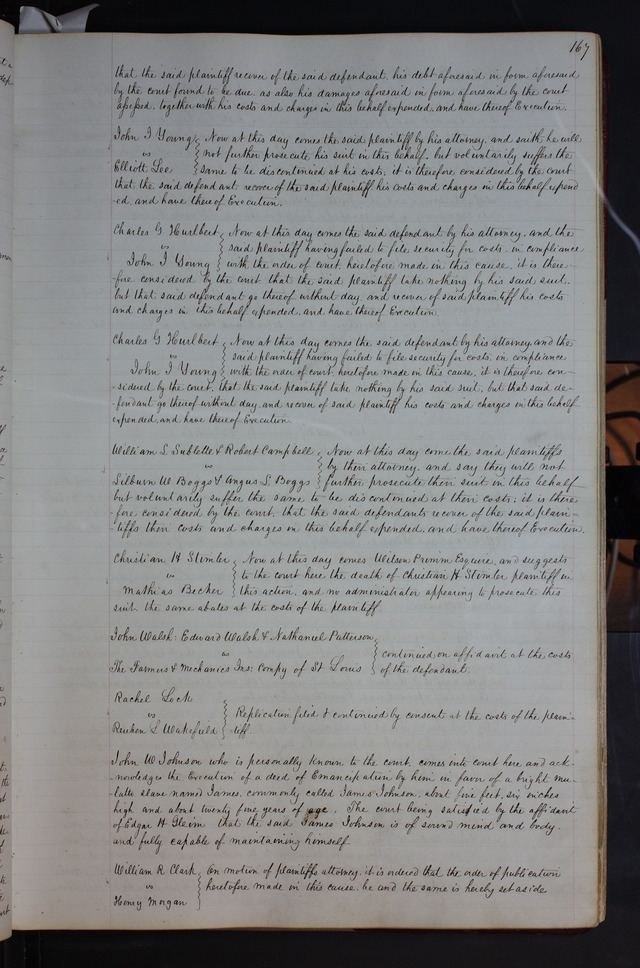 167
that the said plaintiff recover of the said defendant, his debt aforesaid in form aforesaid
by the court found to be due, as also his damages aforesaid in form aforesaid by the court
assessed, together with his costs and charges in this behalf expended, and have thereof Execution.
John I Young Now at this day comes the said plaintiff by his attorney, and saith he will
vs not further prosecute his suit in this behalf, but voluntarily suffers the
Elliott Lee same to be discontinued at his costs, it is therefore considered by the court
that the said defendant recover of the said plaintiff his costs and charges in this behalf expend
-ed, and have thereof Execution.
Charles G Hurlbert Now at this day comes the said defendant by his attorney, and the
vs said plaintiff having failed to file security for costs, in compliance
John I Young with the order of court, heretofore made in this cause, it is there
fore considered by the court that the said plaintiff take nothing by his said suit,
but that said defendant go thereof without day, and recover of said plaintiff his costs
and charges in this behalf expended, and have thereof Execution.
Charles G Hurlbert Now at this day comes the said defendant by his attorney, and the
vs said plaintiff having failed to file security for costs, in compliance
John I Young with the order of court, heretofore made in this cause, it is therefore con-
-sidered by the court, that the said plaintiff take nothing by his said suit, but that said de-
fendant go thereof without day, and recover of said plaintiff his costs and charges in this behalf
expended, and have thereof Execution
William L Sublette & Robert Campbell Now at this day come the said plaintiffs
vs by their attorney, and say they will not
Lilburn W Boggs & Angus L Boggs further prosecute their suit in this behalf
but voluntarily suffer the same to be discontinued at their costs; it is there
fore considered by the court, that the said defendants recover of the said plain-
-tiffs their costs and charges in this behalf expended, and have thereof Execution.
Christian H Stimler Now at this day comes Wilson Primm Esquire, and suggests
vs to the court here the death of Christian H Stimler plaintiff in
Mathias Becker this action, and no administrator appearing to prosecute this
suit the same abates at the costs of the plaintiff
John Walsh, Edward Walsh & Nathaniel Patterson,
vs continued on affidavit at the costs
The Farmers & Mechanics Ins: Compy of St Louis of the defendant.
Rachel Lock
vs Replication filed & continued by consent at the costs of the plain-
Reuben L Wakefield tiff.
John W Johnson who is personally known to the court, comes into court here and ack-
nowledges the Execution of a deed of Emancipation by him in favor of a bright mu-
latto slave named James, commonly called James Johnson, about five feet, six inches
high and about twenty five years of age. The court being satisfied by the affidavit
of Edgar H Gleim that the said James Johnson is of sound mind and body,
and fully capable of maintaining himself
William R Clark On motion of plaintiffs attorney, it is ordered that the order of publication
vs heretofore made in this cause, be and the same is hereby set aside
Henry Morgan